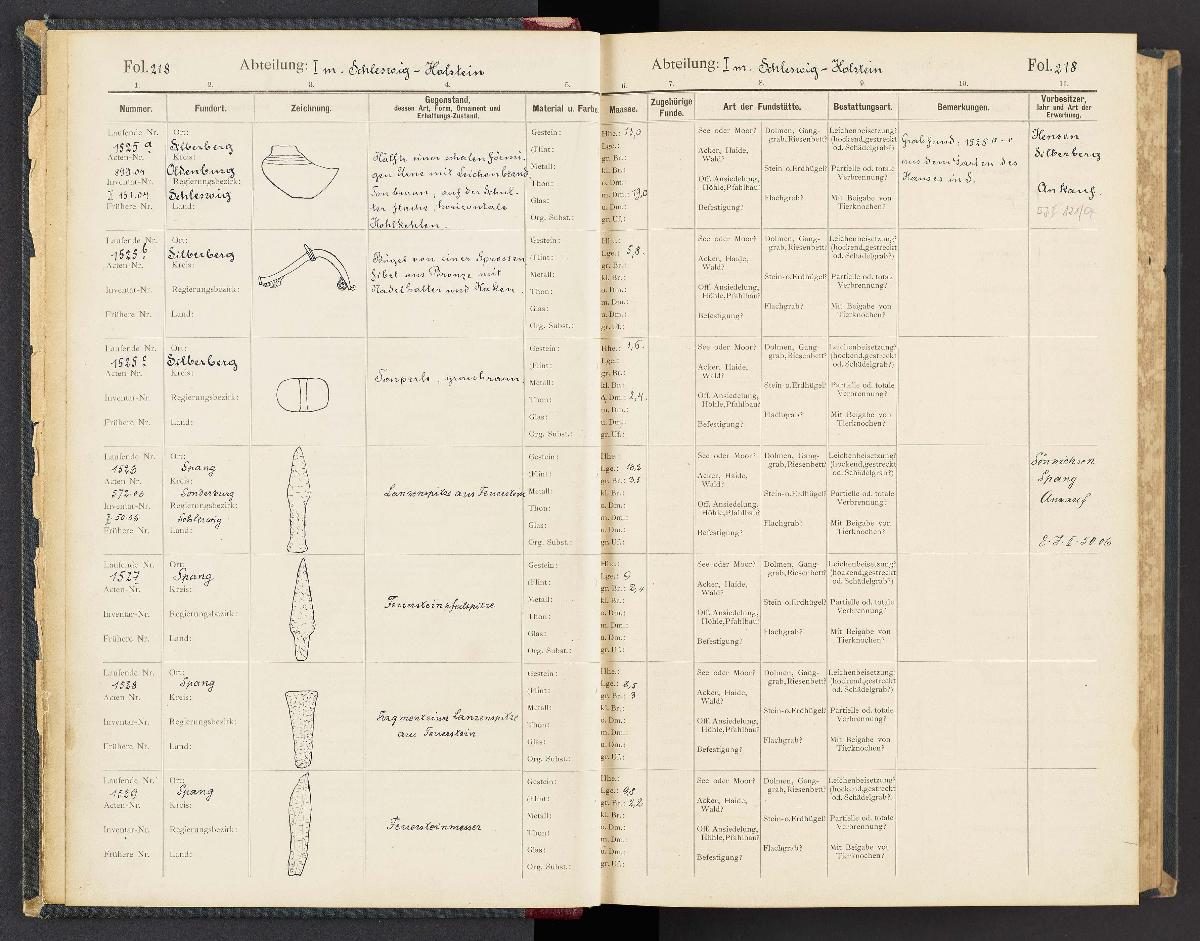 Fol. 218
Abteilung: I m. Schleswig-Holstein
Abteilung: I m. Schleswig-Holstein
Fol. 218
1. 2. 3. 4. 5. 6. 7. 8. 9. 10. 11.
Nummer. Fundort. Zeichnung. Gegenstand, dessen Art, Form, Ornament und Erhaltungs-Zustand. Material u. Farbe Maasse. Zugehörige Funde. Art der Fundstätte. Bestattungsart. Bemerkungen. Vorbesitzer, Jahr und Art der Erwerbung.
Laufende Nr.
1525 a
Acten-Nr.
899.04
Inventar-Nr.
I 151.04
Frühere Nr.
Ort:
Silberberg
Kreis:
Oldenburg
Regierungsbezirk:
Schleswig
Land:
Hälfte einer schalenförmi-
gen Urne mit Leichenbrand
Tonbraun, auf der Schul-
ter flache, horizontale
Hohlkehlen.
Gestein:
(Flint:
Metall:
Thon:
Glas:
Org. Subst.:
Hhe.: 13,0
Lge.:
gr. Br.:
kl. Br.:
o. Dm.:
m. Dm.: 19,0
u. Dm.:
gr. Uf.:
See oder Moor?
Acker, Haide, Wald?
Off. Ansiedelung, Höhle, Pfahlbau?
Befestigung?
Dolmen, Gang-
grab, Riesenbett?
Stein- o. Erdhügel?
Flachgrab?
Leichenbeisetzung?
(hockend, gestreckt
od. Schädelgrab?)
Partielle od. totale
Verbrennung?
Mit Beigabe von
Tierknochen?
Grabfund, 1525 a-c
aus dem Garten des
Hauses in S.
Hensen
Silberberg
Ankauf.
Laufende Nr.
1525 b
Acten-Nr.
Inventar-Nr.
Frühere Nr.
Ort:
Silberberg
Kreis:
Regierungsbezirk:
Land:
Bügel von einer Sprossen
fibel aus Bronze mit
Nadelhalter und Haken.
Gestein:
(Flint:
Metall:
Thon:
Glas:
Org. Subst.:
Hhe.:
Lge.: 5,8.
gr. Br.:
kl. Br.:
o. Dm.:
m. Dm.:
u. Dm.:
gr. Uf.:
See oder Moor?
Acker, Haide, Wald?
Off. Ansiedelung, Höhle, Pfahlbau?
Befestigung?
Dolmen, Gang-
grab, Riesenbett?
Stein- o. Erdhügel?
Flachgrab?
Leichenbeisetzung?
(hockend, gestreckt
od. Schädelgrab?)
Partielle od. totale
Verbrennung?
Mit Beigabe von
Tierknochen?
Laufende Nr.
1525 c
Acten-Nr.
Inventar-Nr.
Frühere Nr.
Ort:
Silberberg
Kreis:
Regierungsbezirk:
Land:
Tonperle, graubraun.
Gestein:
(Flint:
Metall:
Thon:
Glas:
Org. Subst.:
Hhe.: 1,6.
Lge.:
gr. Br.:
kl. Br.:
o. Dm.: 2,4.
m. Dm.:
u. Dm.:
gr. Uf.:
See oder Moor?
Acker, Haide, Wald?
Off. Ansiedelung, Höhle, Pfahlbau?
Befestigung?
Dolmen, Gang-
grab, Riesenbett?
Stein- o. Erdhügel?
Flachgrab?
Leichenbeisetzung?
(hockend, gestreckt
od. Schädelgrab?)
Partielle od. totale
Verbrennung?
Mit Beigabe von
Tierknochen?
Laufende Nr.
1526
Acten-Nr.
572.06
Inventar-Nr.
I 50.06
Frühere Nr.
Ort:
Spang
Kreis:
Sonderburg
Regierungsbezirk:
Schleswig
Land:
Lanzenspitze aus Feuerstein
Gestein:
(Flint:
Metall:
Thon:
Glas:
Org. Subst.:
Hhe.:
Lge.: 16,2
gr. Br.: 3,1
kl. Br.:
o. Dm.:
m. Dm.:
u. Dm.:
gr. Uf.:
See oder Moor?
Acker, Haide, Wald?
Off. Ansiedelung, Höhle, Pfahlbau?
Befestigung?
Dolmen, Gang-
grab, Riesenbett?
Stein- o. Erdhügel?
Flachgrab?
Leichenbeisetzung?
(hockend, gestreckt
od. Schädelgrab?)
Partielle od. totale
Verbrennung?
Mit Beigabe von
Tierknochen?
Sönnichsen
Spang
Ankauf
E. J. I. 50.06
Laufende Nr.
1527
Acten-Nr.
Inventar-Nr.
Frühere Nr.
Ort:
Spang
Kreis:
Regierungsbezirk:
Land:
Feuersteinpfeilspitze
Gestein:
(Flint:
Metall:
Thon:
Glas:
Org. Subst.:
Hhe.:
Lge.: 9
gr. Br.: 2,4
kl. Br.:
o. Dm.:
m. Dm.:
u. Dm.:
gr. Uf.:
See oder Moor?
Acker, Haide, Wald?
Off. Ansiedelung, Höhle, Pfahlbau?
Befestigung?
Dolmen, Gang-
grab, Riesenbett?
Stein- o. Erdhügel?
Flachgrab?
Leichenbeisetzung?
(hockend, gestreckt
od. Schädelgrab?)
Partielle od. totale
Verbrennung?
Mit Beigabe von
Tierknochen?
Laufende Nr.
1528
Acten-Nr.
Inventar-Nr.
Frühere Nr.
Ort:
Spang
Kreis:
Regierungsbezirk:
Land:
Fragment einer Lanzenspitze
aus Feuerstein
Gestein:
(Flint:
Metall:
Thon:
Glas:
Org. Subst.:
Hhe.:
Lge.: 8,5
gr. Br.: 3
kl. Br.:
o. Dm.:
m. Dm.:
u. Dm.:
gr. Uf.:
See oder Moor?
Acker, Haide, Wald?
Off. Ansiedelung, Höhle, Pfahlbau?
Befestigung?
Dolmen, Gang-
grab, Riesenbett?
Stein- o. Erdhügel?
Flachgrab?
Leichenbeisetzung?
(hockend, gestreckt
od. Schädelgrab?)
Partielle od. totale
Verbrennung?
Mit Beigabe von
Tierknochen?
Laufende Nr.
1529
Acten-Nr.
Inventar-Nr.
Frühere Nr.
Ort:
Spang
Kreis:
Regierungsbezirk:
Land:
Feuersteinmesser
Gestein:
(Flint:
Metall:
Thon:
Glas:
Org. Subst.:
Hhe.:
Lge.: 9,8
gr. Br.: 2,2
kl. Br.:
o. Dm.:
m. Dm.:
u. Dm.:
gr. Uf.:
See oder Moor?
Acker, Haide, Wald?
Off. Ansiedelung, Höhle, Pfahlbau?
Befestigung?
Dolmen, Gang-
grab, Riesenbett?
Stein- o. Erdhügel?
Flachgrab?
Leichenbeisetzung?
(hockend, gestreckt
od. Schädelgrab?)
Partielle od. totale
Verbrennung?
Mit Beigabe von
Tierknochen?